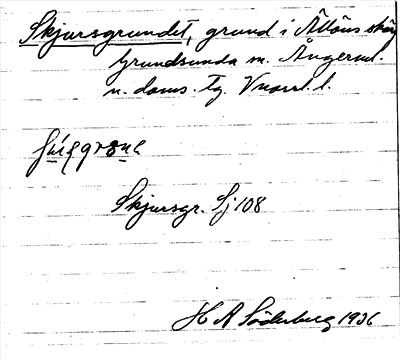 Skjursgrundet, grund i Älvöns skär
Grundsunda sn. Ångerml.
n. doms. tg. Vnorrl. l.
Skjursgr. Sj 108
H A Söderberg 1936